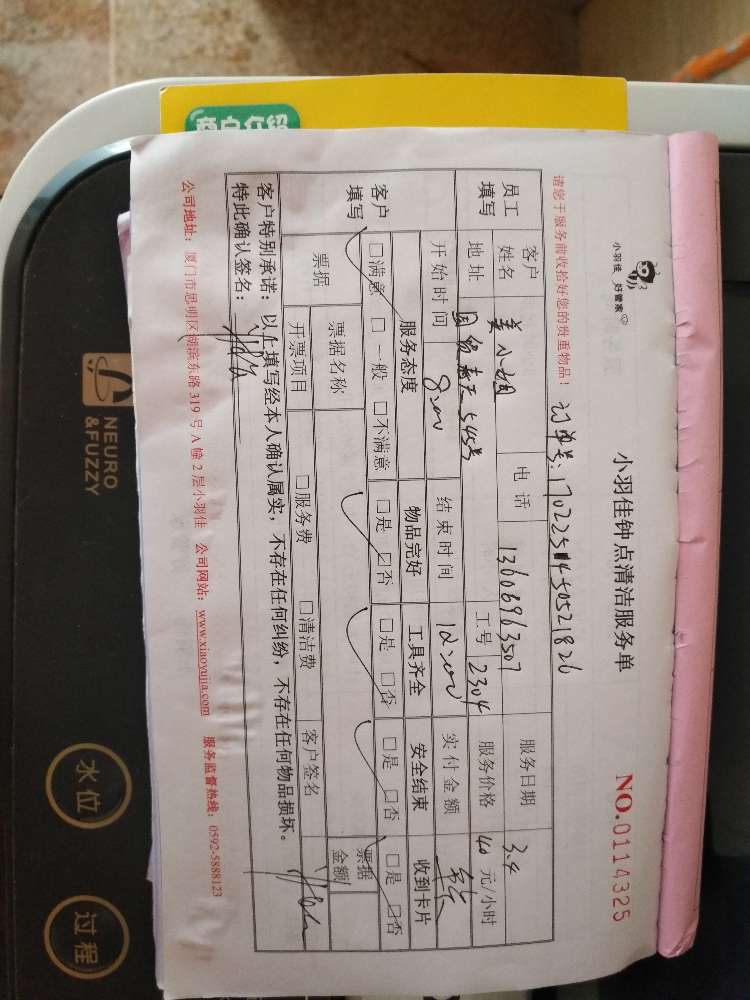 小羽佳 好管家
小羽佳钟点清洁服务单
NO.0114325
请您于服务前收拾好您的贵重物品！ 订单号：
员工填写 客户姓名 电话 13606963507 服务日期 3.4
地址 工号 2304 服务价格 40 元/小时
开始时间 8:00 结束时间 12:00 实付金额
客户填写 服务态度 物品完好 工具齐全 安全结束 收到卡片
□满意 □一般 □不满意 □是 □否 □是 □否 □是 □否 □是 □否
票据 票据名称 票据金额
开票项目 □服务费 □清洁费 客户签名
客户特别承诺：以上填写经本人确认属实，不存在任何纠纷，不存在任何物品损坏。
特此确认签名：
公司地址：厦门市思明区湖滨东路 319 号 A 幢 2 层小羽佳 公司网站：www.xiaoyujia.com 服务监督热线：0592-5888123
NEURO
&FUZZY
水位
过程